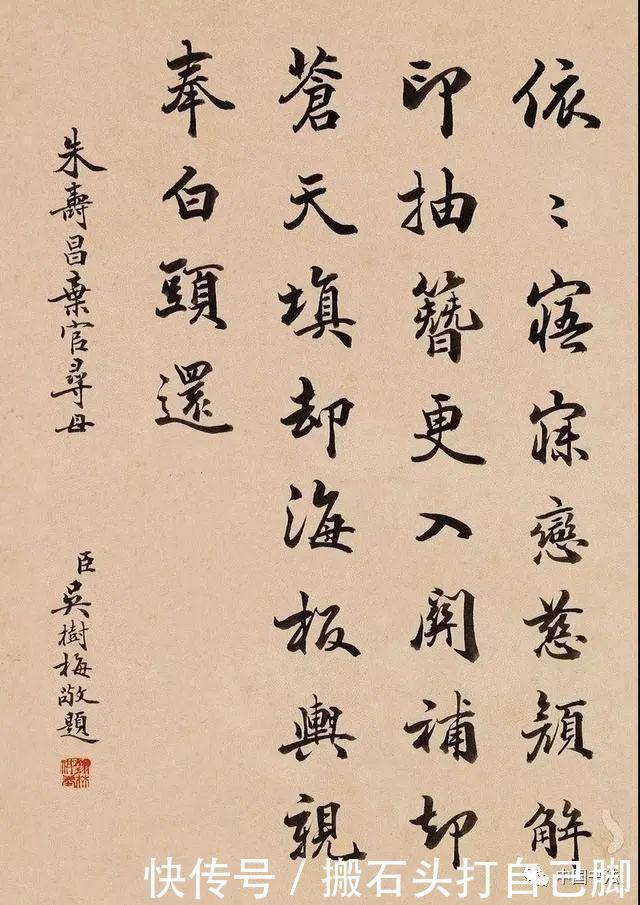 依〻寤寐戀慈顏解
印抽簪更入關補却
蒼天填却海板輿親
奉白頭還
朱壽昌棄官尋母
臣吳樹梅敬題
中国书法
快传号 / 搬石头打自己脚